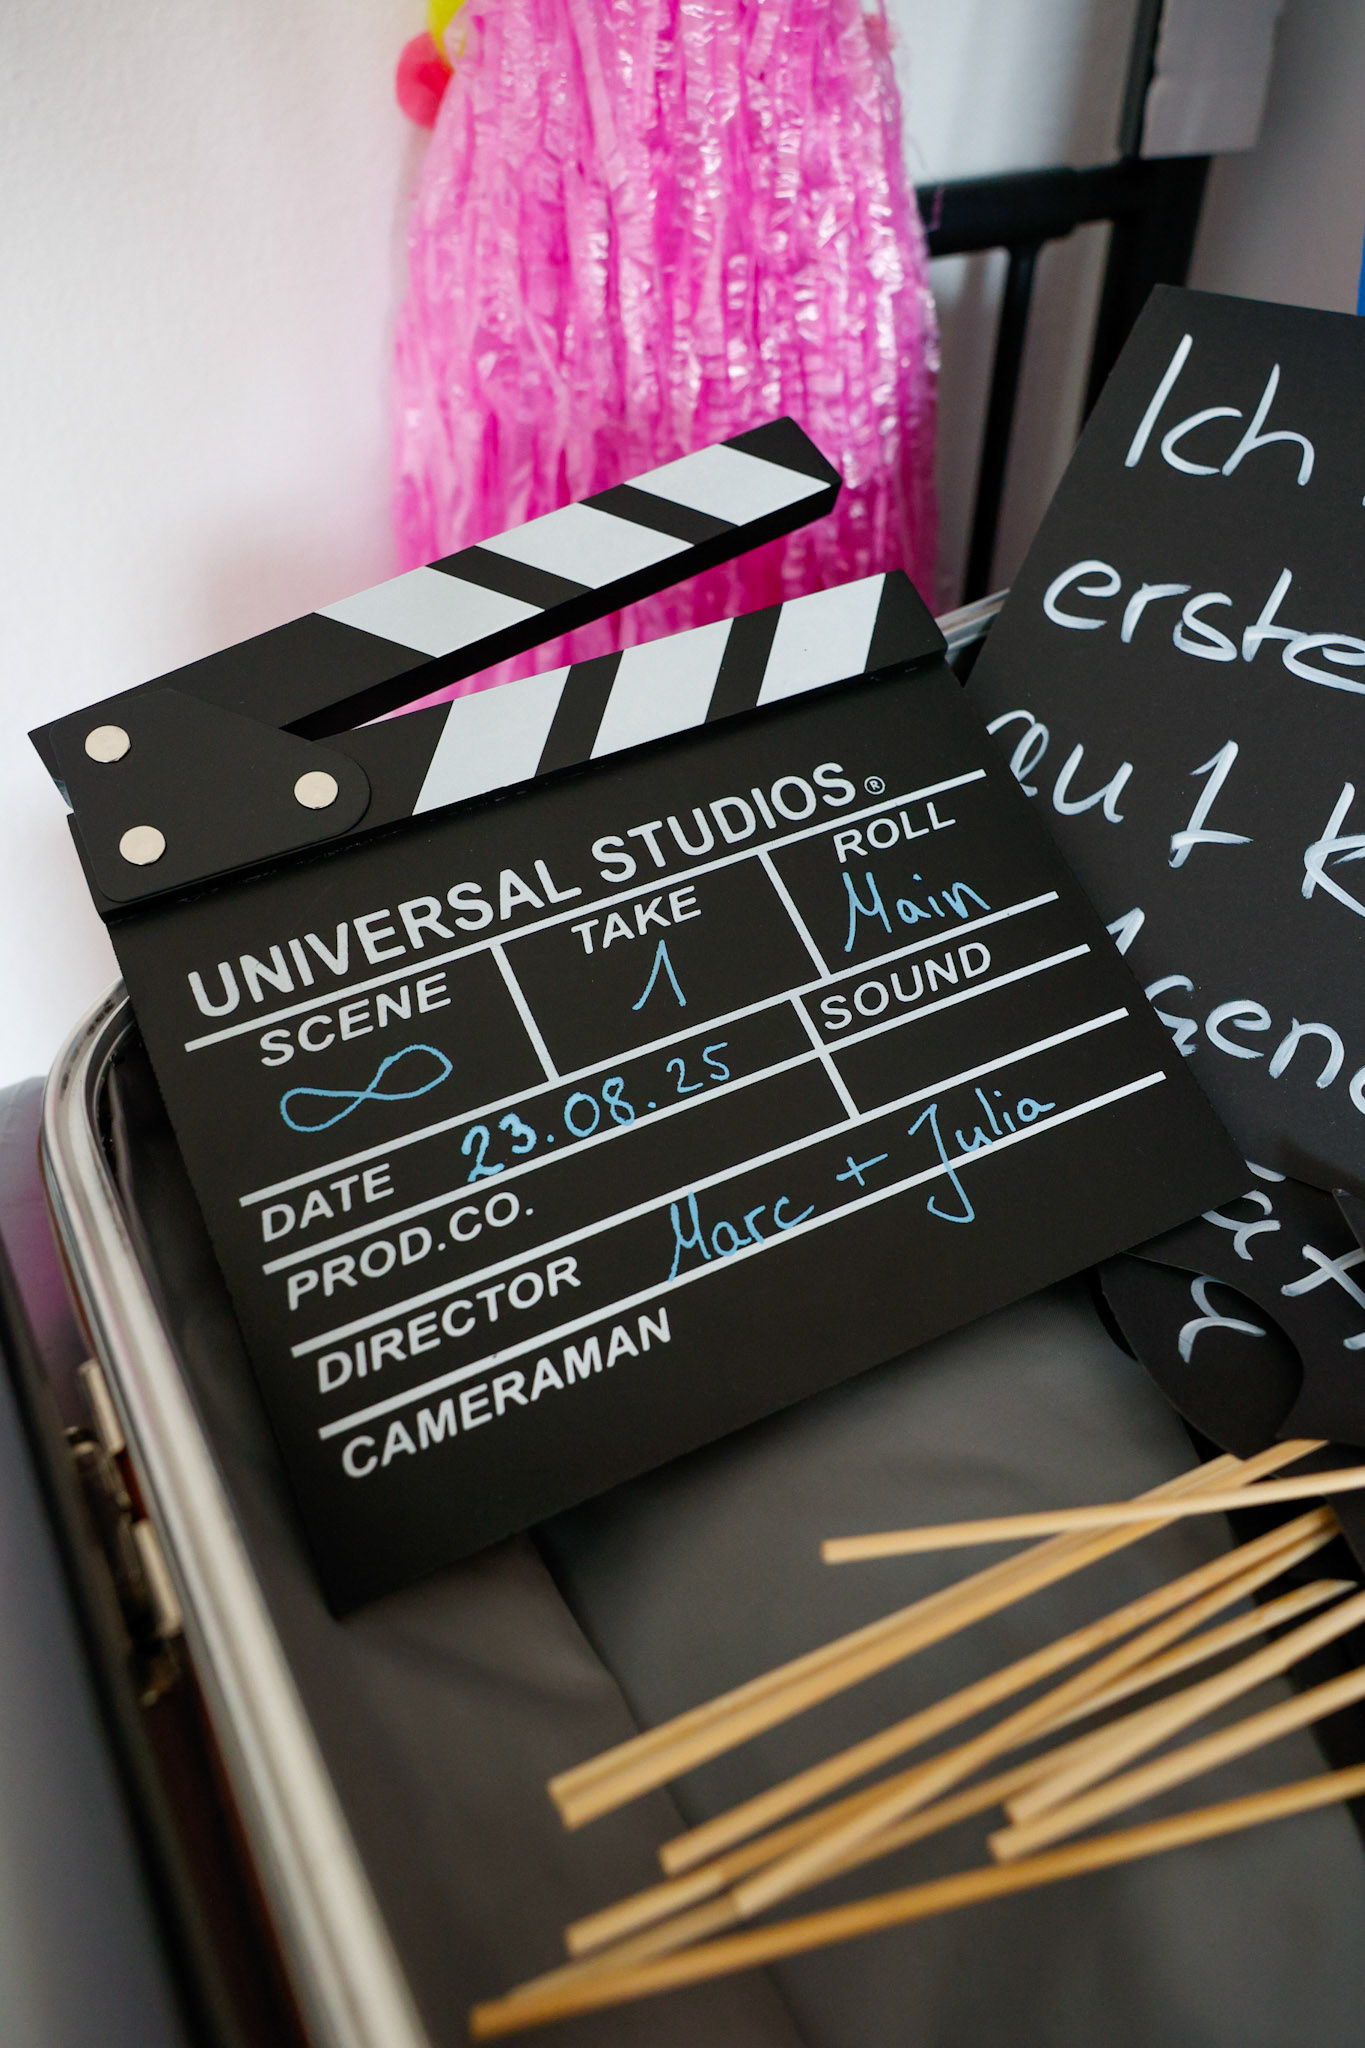 UNIVERSAL STUDIOS®
SCENE TAKE ROLL
∞ 1 Main
SOUND
DATE 23.08.25
PROD.CO.
DIRECTOR Marc + Julia
CAMERAMAN
Ich
erste